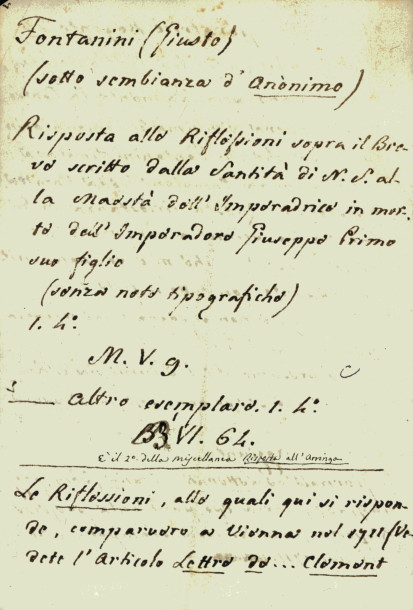 Fontanini (Giusto)
(sotto sembianza d'Anonimo)
Risposta alle Riflessioni sopra il Bre-
ve scritto dalla Santità di N. S. al-
la Maestà dell'Imperadrice in mor-
te dell'Imperadore Giuseppe Primo
suo figlio
(senza note tipografiche)
1. 4°.
M. V. g.
— Altro esemplare. 1. 4°.
VI. 64.
È il 2°. della Miscellanea Risposta all'Arringa
Le Riflessioni, alle quali qui si rispon-
de, comparvero a Vienna nel 1711 (Ve-
dete l'Articolo Lettre de... Clement